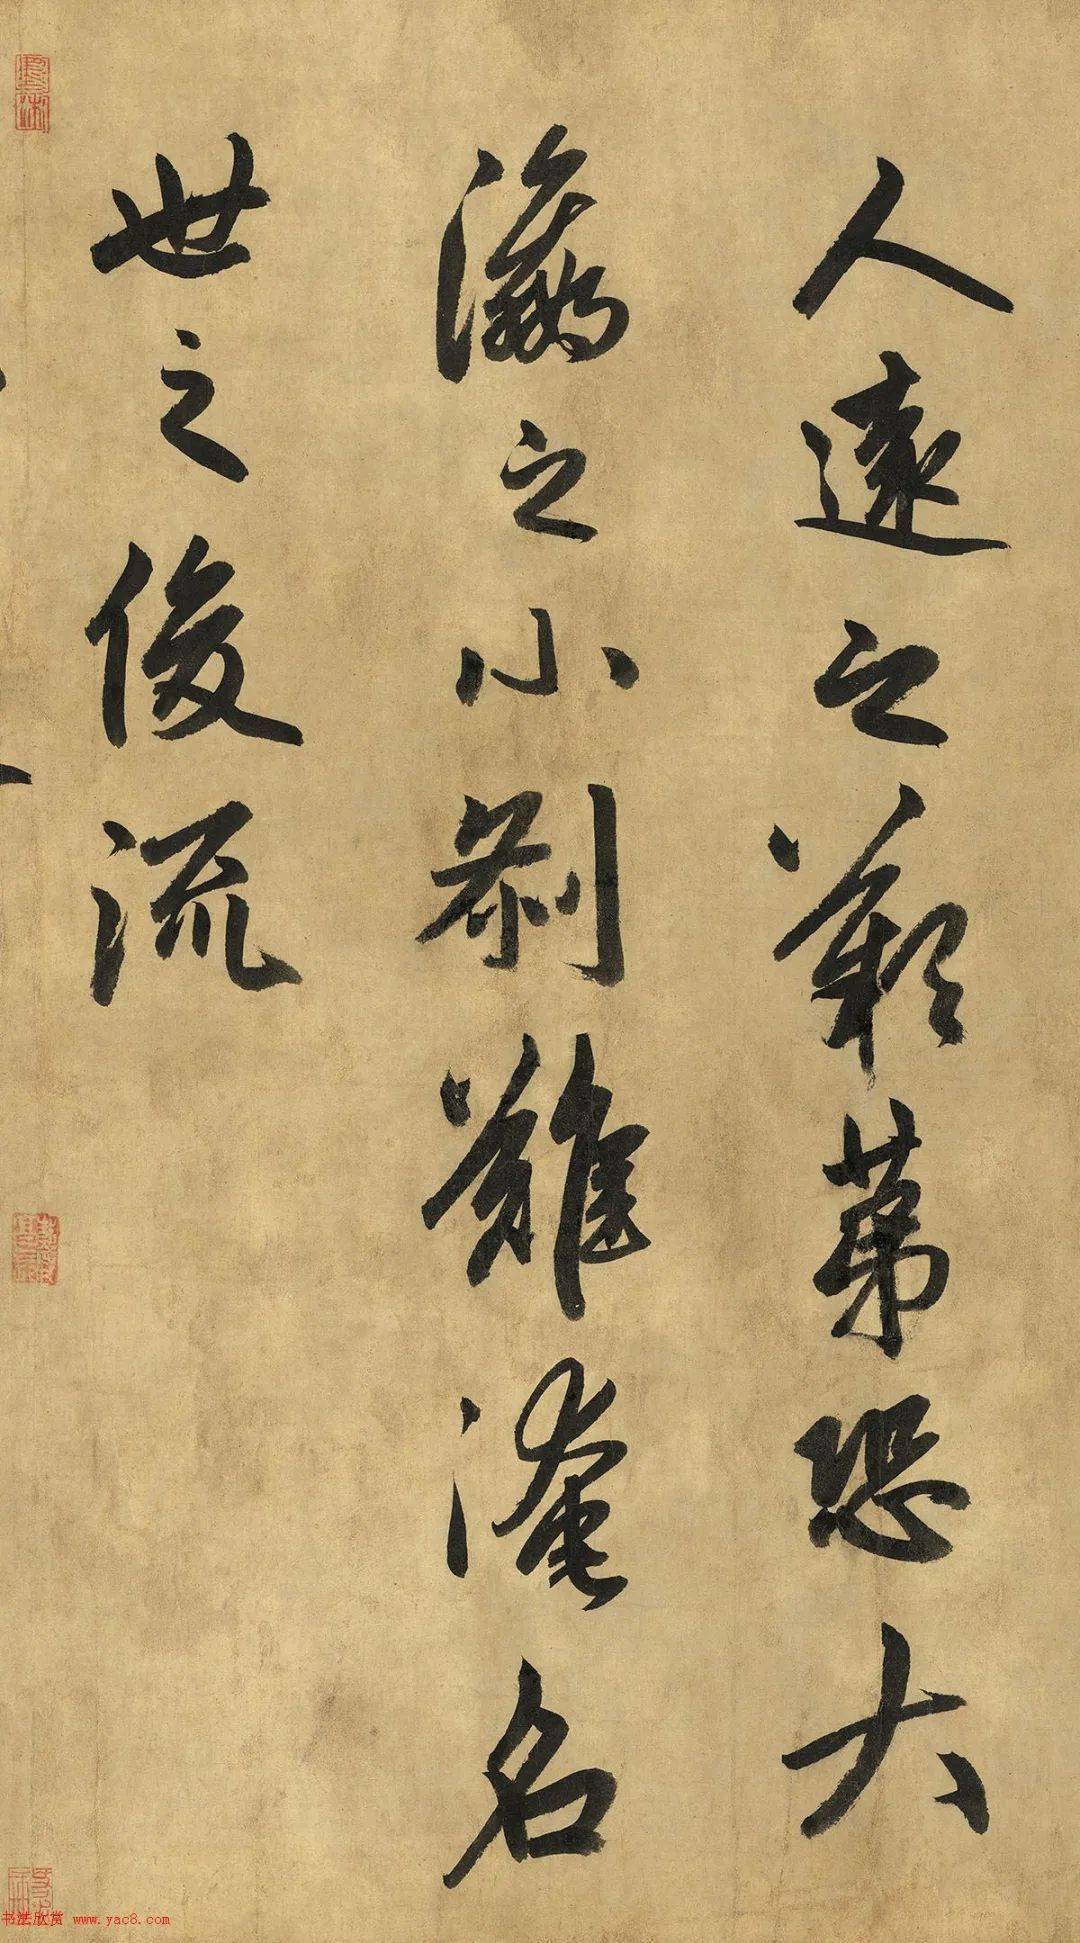 人遠之歎苐恐大
瀛之小刹難淹名
世之俊流
书法欣赏 www.yac8.com